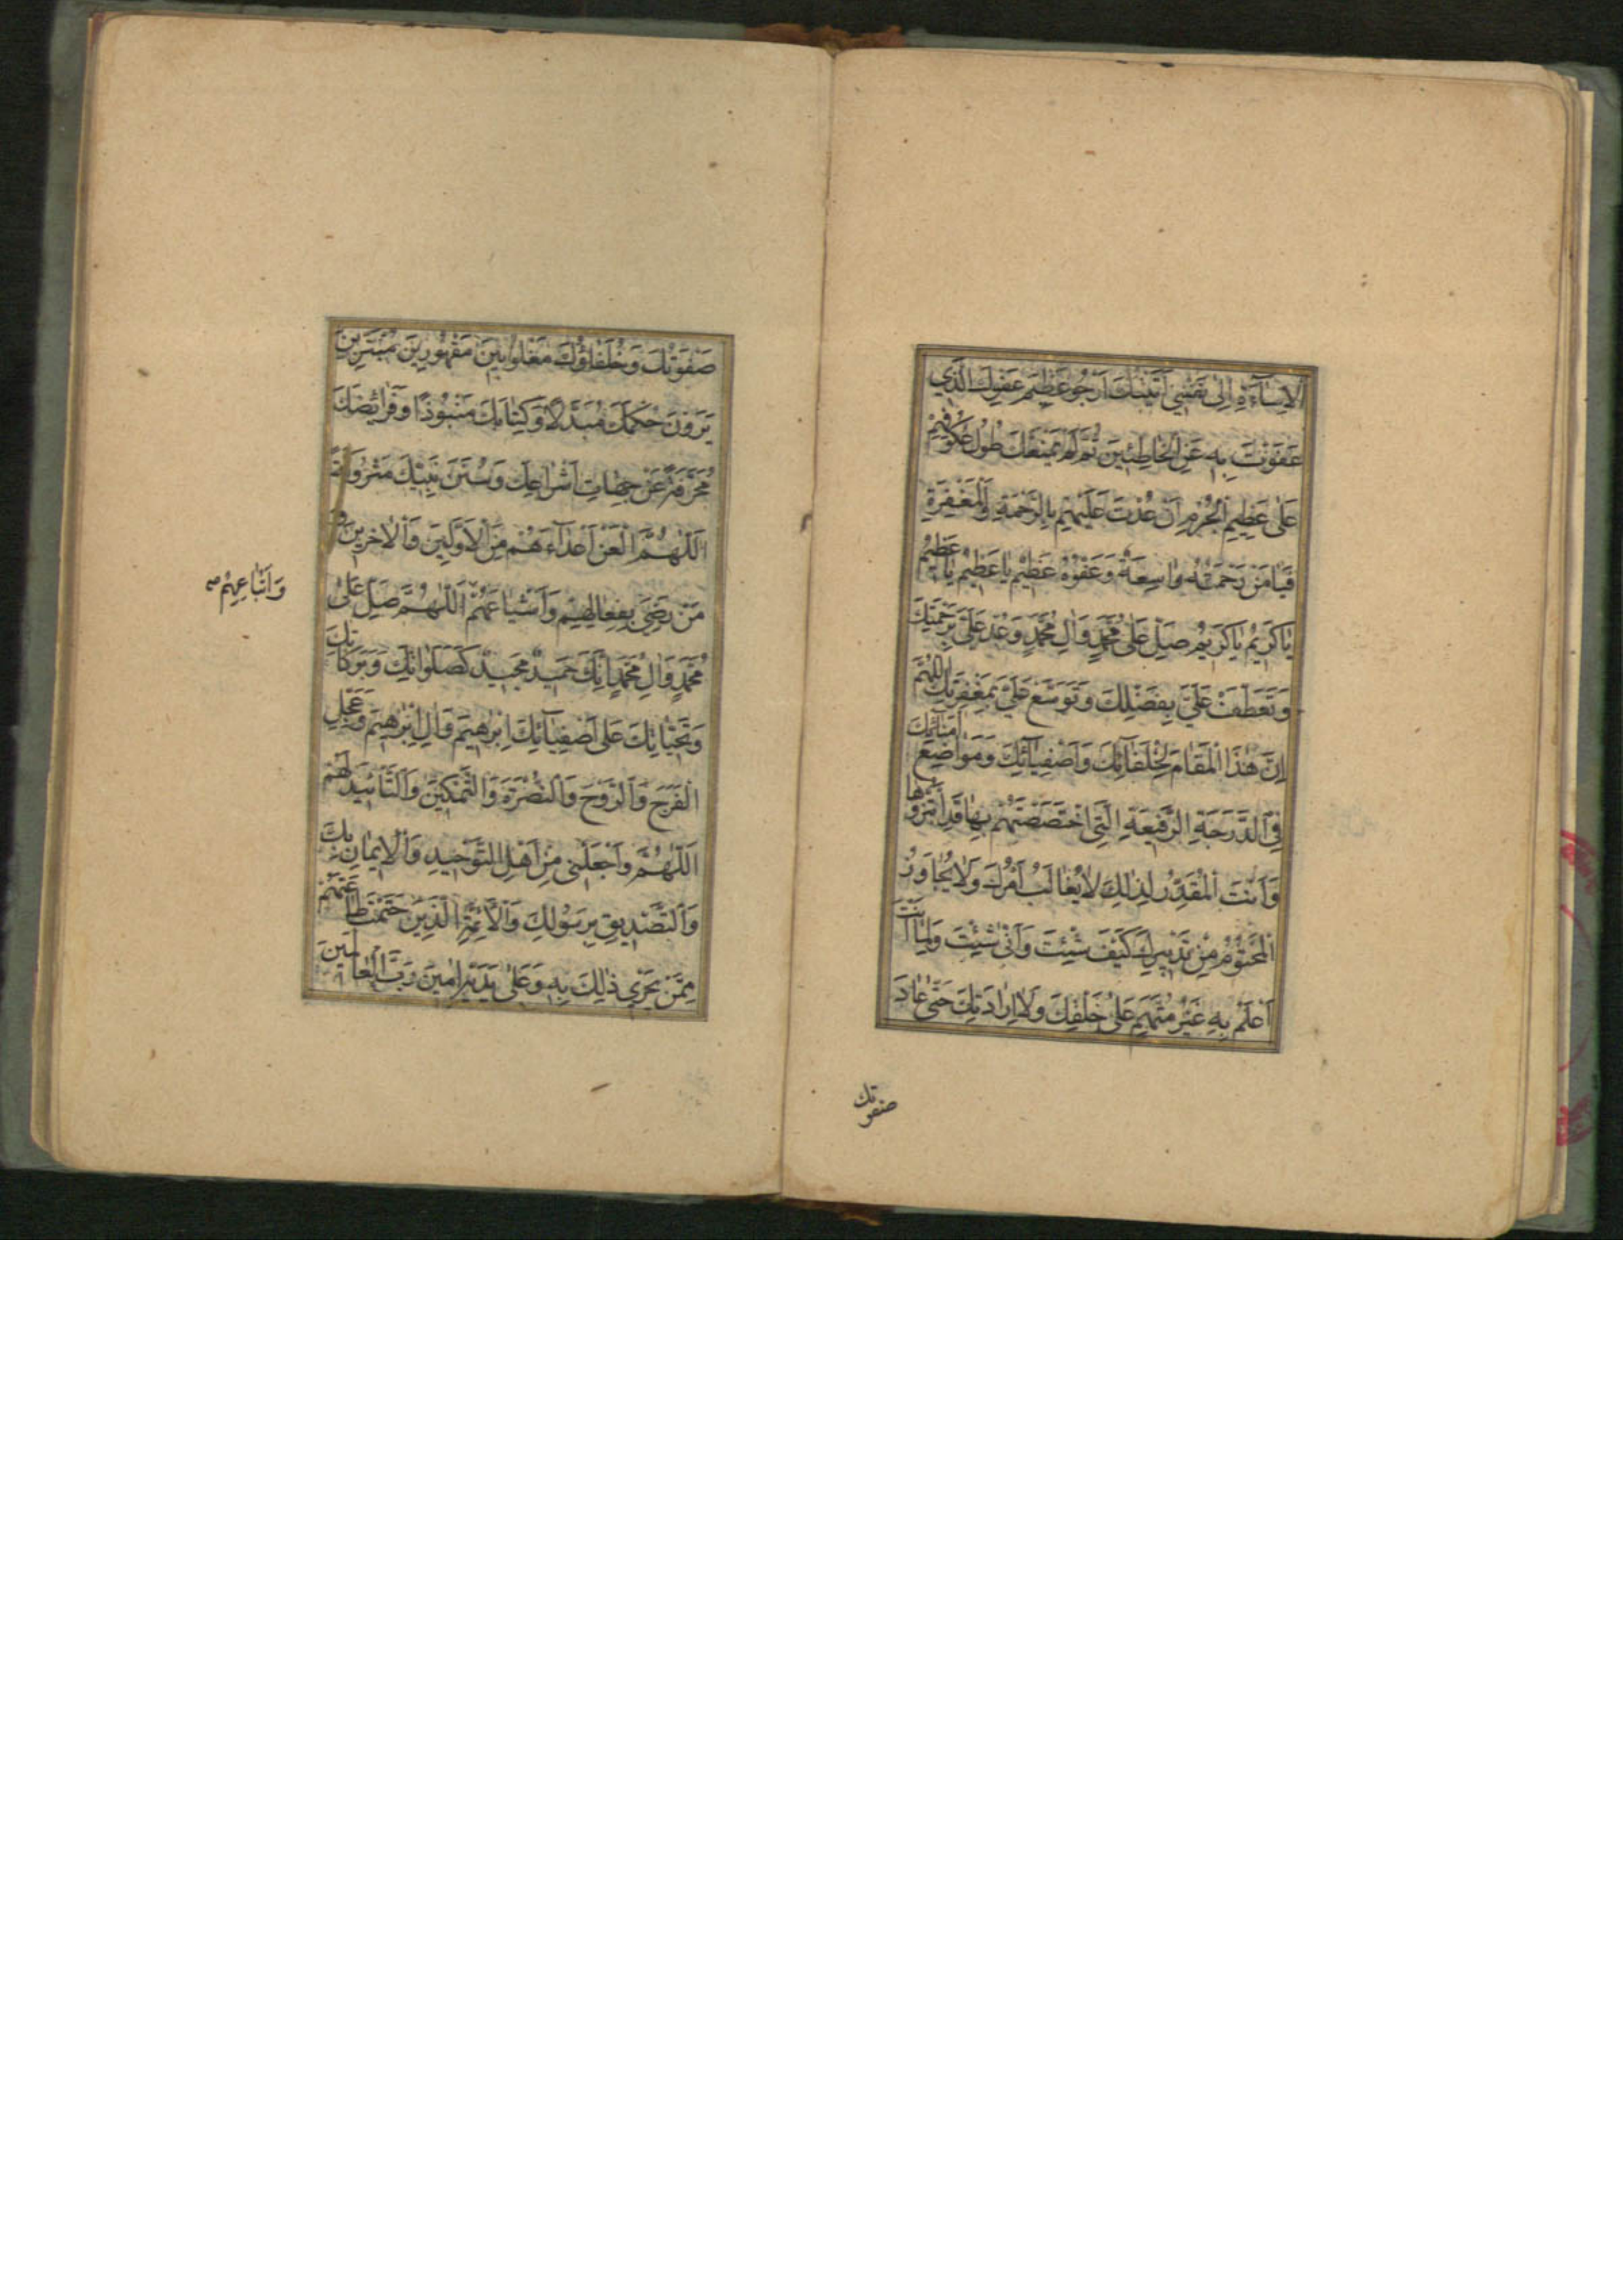 اَلْاِسٰآءَةِ اِلٰى نَفْسٖى اَتَيْتُكَ اَرْجُو عَظٖيمَ عَفْوِكَ الَّذٖى
عَفَوْتَ بِهٖ عَنِ الْخٰاطِئٖينَ ثُمَّ لَمْ يَمْنَعْكَ طُولُ عُكُوفِهِمْ
عَلٰى عَظٖيمِ الْجُرْمِ اَنْ عُدْتَ عَلَيْهِمْ بِالرَّحْمَةِ وَالْمَغْفِرَةِ
فَيٰا مَنْ رَحْمَتُهُ وٰاسِعَةٌ وَعَفْوُهُ عَظٖيمٌ يٰا عَظٖيمُ يٰا عَظٖيمُ
يٰا كَرٖيمُ يٰا كَرٖيمُ صَلِّ عَلٰى مُحَمَّدٍ وَاٰلِ مُحَمَّدٍ وَعُدْ عَلَىَّ بِرَحْمَتِكَ
وَتَعَطَّفْ عَلَىَّ بِفَضْلِكَ وَتَوَسَّعْ عَلَىَّ بِمَغْفِرَتِكَ اَللّٰهُمَّ
اِنَّ هٰذَا الْمَقٰامَ لِخُلَفٰآئِكَ وَاَصْفِيٰآئِكَ وَمَوٰاضِعَ اُمَنٰآئِكَ
فِى الدَّرَجَةِ الرَّفٖيعَةِ الَّتٖى اخْتَصَصْتَهُمْ بِهٰا قَدِ ابْتَزُّوهٰا
وَاَنْتَ الْمُقَدِّرُ لِذٰلِكَ لٰا يُغٰالَبُ اَمْرُكَ وَلٰا يُجٰاوَزُ
الْمَحْتُومُ مِنْ تَدْبٖيرِكَ كَيْفَ شِئْتَ وَاَنّٰى شِئْتَ وَلِمٰا اَنْتَ
اَعْلَمُ بِهٖ غَيْرُ مُتَّهَمٍ عَلٰى خَلْقِكَ وَلٰا لِاِرٰادَتِكَ حَتّٰى عٰادَ
صفوتك
صَفْوَتُكَ وَخُلَفٰاؤُكَ مَغْلُوبٖينَ مَقْهُورٖينَ مُبْتَزّٖينَ
يَرَوْنَ حُكْمَكَ مُبَدَّلًا وَكِتٰابَكَ مَنْبُوذًا وَفَرٰائِضَكَ
مُحَرَّفَةً عَنْ جِهٰاتِ اَشْرٰاعِكَ وَسُنَنَ نَبِيِّكَ مَتْرُوكَةً
اَللّٰهُمَّ الْعَنْ اَعْدٰآءَهُمْ مِنَ الْاَوَّلٖينَ وَالْاٰخِرٖينَ وَ
مَنْ رَضِىَ بِفِعٰالِهِمْ وَاَشْيٰاعَهُمْ اَللّٰهُمَّ صَلِّ عَلٰى
وَاَتْبٰاعِهِمْ صح
مُحَمَّدٍ وَاٰلِ مُحَمَّدٍ اِنَّكَ حَمٖيدٌ مَجٖيدٌ كَصَلَوٰاتِكَ وَبَرَكٰاتِكَ
وَتَحِيّٰاتِكَ عَلٰى اَصْفِيٰآئِكَ اِبْرٰهٖيمَ وَاٰلِ اِبْرٰهٖيمَ وَعَجِّلِ
الْفَرَجَ وَالرَّوْحَ وَالنُّصْرَةَ وَالتَّمْكٖينَ وَالتَّاْيٖيدَ لَهُمْ
اَللّٰهُمَّ وَاجْعَلْنٖى مِنْ اَهْلِ التَّوْحٖيدِ وَالْاٖيمٰانِ بِكَ
وَالتَّصْدٖيقِ بِرَسُولِكَ وَالْاَئِمَّةِ الَّذٖينَ حَتَمْتَ طٰاعَتَهُمْ
مِمَّنْ يَجْرٖى ذٰلِكَ بِهٖ وَعَلٰى يَدَيْهِ اٰمٖينَ رَبَّ الْعٰالَمٖينَ